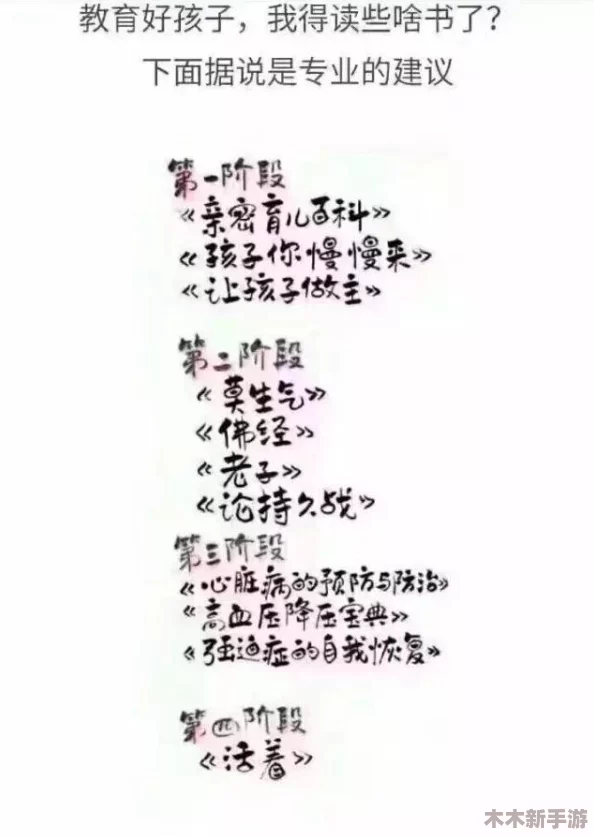 教育好孩子，我得读些啥书了？
下面据说是专业的建议
第一阶段
《亲密育儿百科》
《孩子你慢慢来》
《让孩子做主》
第二阶段
《莫生气》
《佛经》
《老子》
《论持久战》
第三阶段
《心脏病的预防与防治》
《高血压降压宝典》
《强迫症的自我恢复》
第四阶段
《活着》
木木新手游